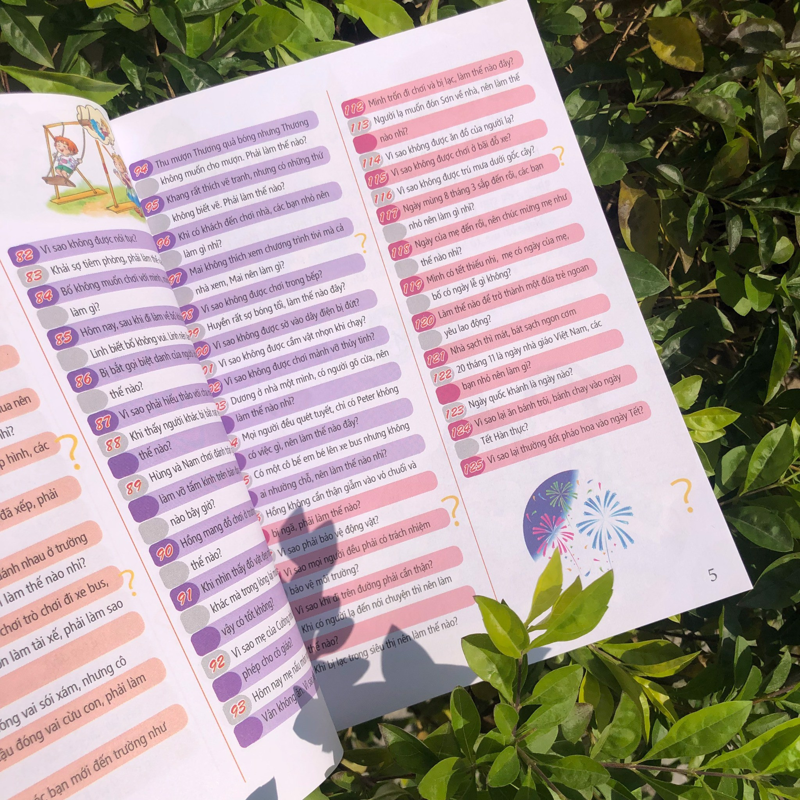 ua nên
hỉ?
p hình, các
đã xếp, phải
ánh nhau ở trường
làm thế nào nhỉ?
chơi trò chơi đi xe bus,
ốn làm tài xế, phải làm sao
óng vai sói xám, nhưng có
ậu đóng vai cừu con, phải làm
ốc bạn mới đến trường như
82 Vì sao không được nói tục?
83 Khải sợ tiêm phòng, phải làm thế
84 Bố không muốn chơi với mình
làm gì?
85 Hôm nay, sau khi đi làm về tối
Linh biết bố không vui. Linh nên
86 Bị bắt gọi biệt danh của người
thế nào?
87 Vì sao phải hiếu thảo với
88 Khi thấy người khác bị bắt
thế nào?
89 Hùng và Nam chơi đánh
làm vỡ tấm kính trên bàn
nào bây giờ?
90 Hồng mang đồ chơi ở
thế nào?
91 Khi nhìn thấy đồ vật
khác mà trong lòng
vậy có tốt không?
92 Vì sao mẹ của Cường
phép cho cô giáo?
93 Hôm nay mẹ nấu
Vân không ăn. Vì
94 Thu mượn Thương quả bóng nhưng Thương
không muốn cho mượn. Phải làm thế nào?
95 Khang rất thích vẽ tranh, nhưng có những thứ
không biết vẽ. Phải làm thế nào?
96 Khi có khách đến chơi nhà, các bạn nhỏ nên
làm gì nhỉ?
97 Mai không thích xem chương trình tivi mà cả
nhà xem, Mai nên làm gì?
98 Vì sao không được chơi trong bếp?
99 Huyền rất sợ bóng tối, làm thế nào đây?
00 Vì sao không được sờ vào dây điện bị đứt?
01 Vì sao không được cầm vật nhọn khi chạy?
02 Vì sao không được chơi mảnh vỡ thủy tinh?
03 Dương ở nhà một mình, có người gõ cửa, nên
làm thế nào nhỉ?
4 Mọi người đều quét tuyết, chỉ có Peter không
có việc gì, nên làm thế nào đây?
5 Có một cô bế em bé lên xe bus nhưng không
ai nhường chỗ, nên làm thế nào nhỉ?
Hồng không cẩn thận giẫm vào vỏ chuối và
bị ngã, phải làm thế nào?
Vì sao phải bảo vệ động vật?
Vì sao mọi người đều phải có trách nhiệm
bảo vệ môi trường?
Vì sao khi đi trên đường phải cẩn thận?
Khi có người lạ đến nói chuyện thì nên làm
thế nào?
Khi bị lạc trong siêu thị nên làm thế nào?
112 Mình trốn đi chơi và bị lạc, làm thế nào đây?
113 Người lạ muốn đón Sơn về nhà, nên làm thế
nào nhỉ?
114 Vì sao không được ăn đồ của người lạ?
115 Vì sao không được chơi ở bãi đỗ xe?
116 Vì sao không được trú mưa dưới gốc cây?
117 Ngày mùng 8 tháng 3 sắp đến rồi, các bạn
nhỏ nên làm gì nhỉ?
118 Ngày của mẹ đến rồi, nên chúc mừng mẹ như
thế nào nhỉ?
119 Mình có tết thiếu nhi, mẹ có ngày của mẹ,
bố có ngày lễ gì không?
120 Làm thế nào để trở thành một đứa trẻ ngoan
yêu lao động?
121 Nhà sạch thì mát, bát sạch ngon cơm
122 20 tháng 11 là ngày nhà giáo Việt Nam, các
bạn nhỏ nên làm gì?
123 Ngày quốc khánh là ngày nào?
124 Vì sao lại ăn bánh trôi, bánh chay vào ngày
Tết Hàn thực?
125 Vì sao lại thường đốt pháo hoa vào ngày Tết?
5